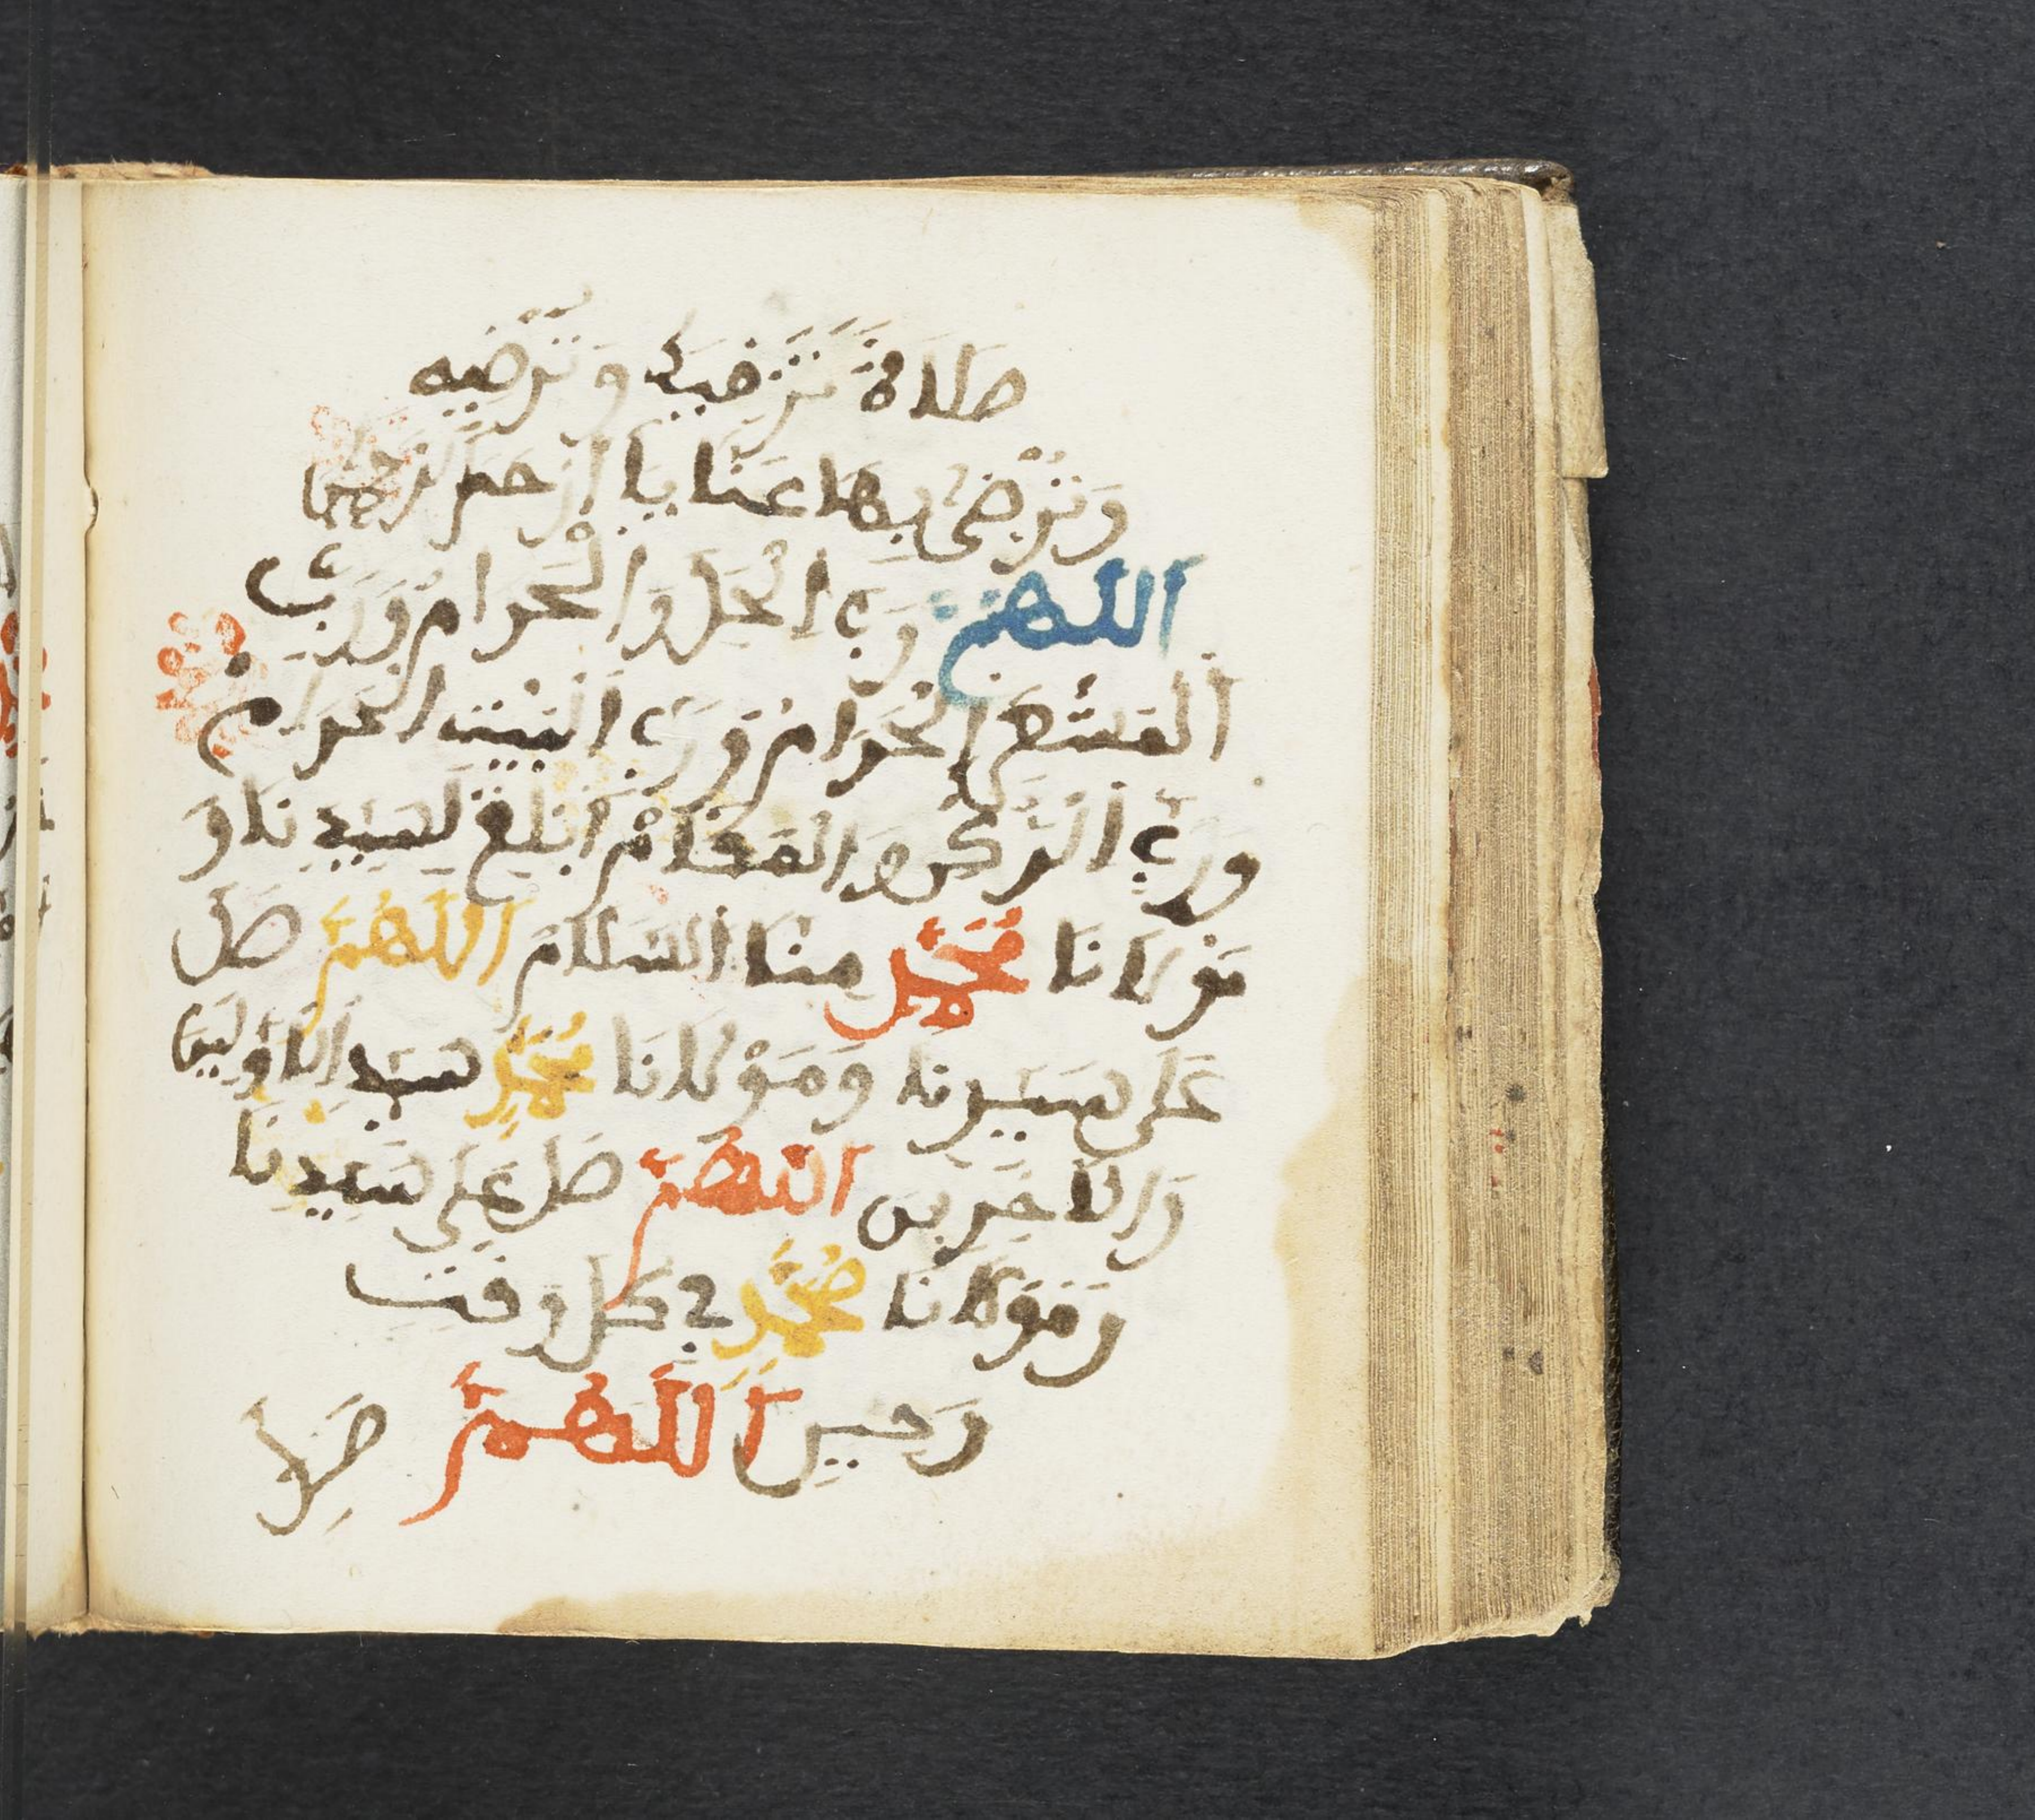 صَلَاةً تُرْضِيكَ وَتُرْضِيهِ
وَتَرْضَى بِهَا عَنَّا يَا أَرْحَمَ الرَّحِمِينَ
اَللَّهُمَّ رَبَّ الْحِلِّ وَالْحَرَامِ وَرَبَّ
الْمَشْعَرِ الْحَرَامِ وَرَبَّ الْبَيْتِ الْحَرَامِ
وَرَبَّ الرُّكْنِ وَالْمَقَامِ أَبْلِغْ لِسَيِّدِنَا وَ
مَوْلَانَا مُحَمَّدٍ مِنَّا السَّلَامَ اَللَّهُمَّ صَلِّ
عَلَى سَيِّدِنَا وَمَوْلَانَا مُحَمَّدٍ سَيِّدِ الْأَوَّلِينَ
وَالْآخِرِينَ اَللَّهُمَّ صَلِّ عَلَى سَيِّدِنَا
وَمَوْلَانَا مُحَمَّدٍ فِي كُلِّ وَقْتٍ
وَحِينٍ اَللَّهُمَّ صَلِّ